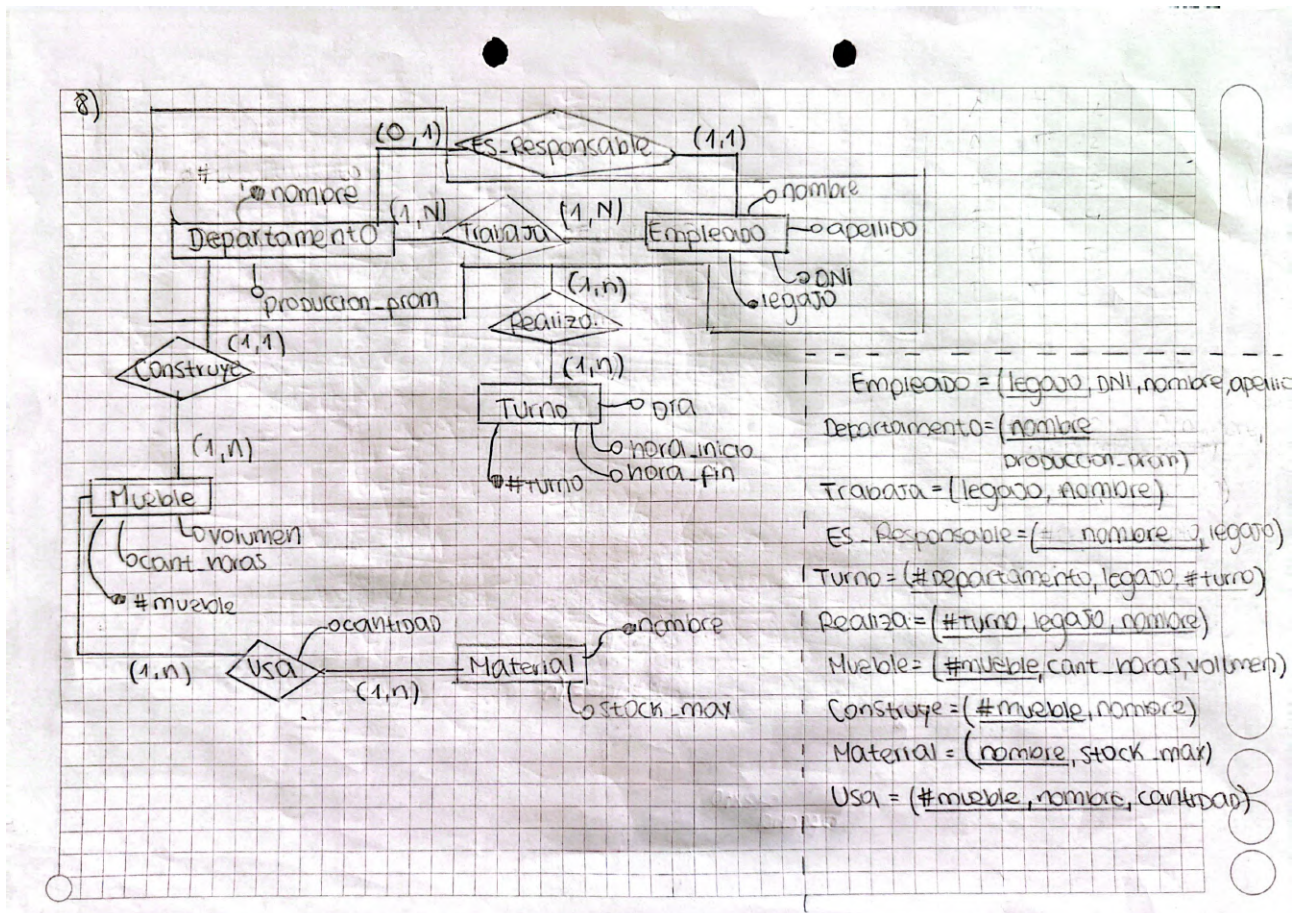 8)
(0,1)
ES_Responsable
(1,1)
#
nombre
nombre
Departamento
(1,N)
Trabaja
(1,N)
Empleado
apellido
DNI
legajo
produccion_prom
(1,n)
Realiza
(1,1)
Construye
(1,n)
Turno
Dia
hora_inicio
hora_fin
#turno
(1,n)
Mueble
volumen
cant_horas
#mueble
cantidad
nombre
(1,n)
Usa
(1,n)
Material
stock_max
Empleado = (legajo, DNI, nombre, apellid
Departamento = (nombre
produccion_prom)
Trabaja = (legajo, nombre)
ES_Responsable = (# nombre, legajo)
Turno = (#Departamento, legajo, #turno)
Realiza = (#turno, legajo, nombre)
Mueble = (#mueble, cant_horas, volumen)
Construye = (#mueble, nombre)
Material = (nombre, stock_max)
Usa = (#mueble, nombre, cantidad)